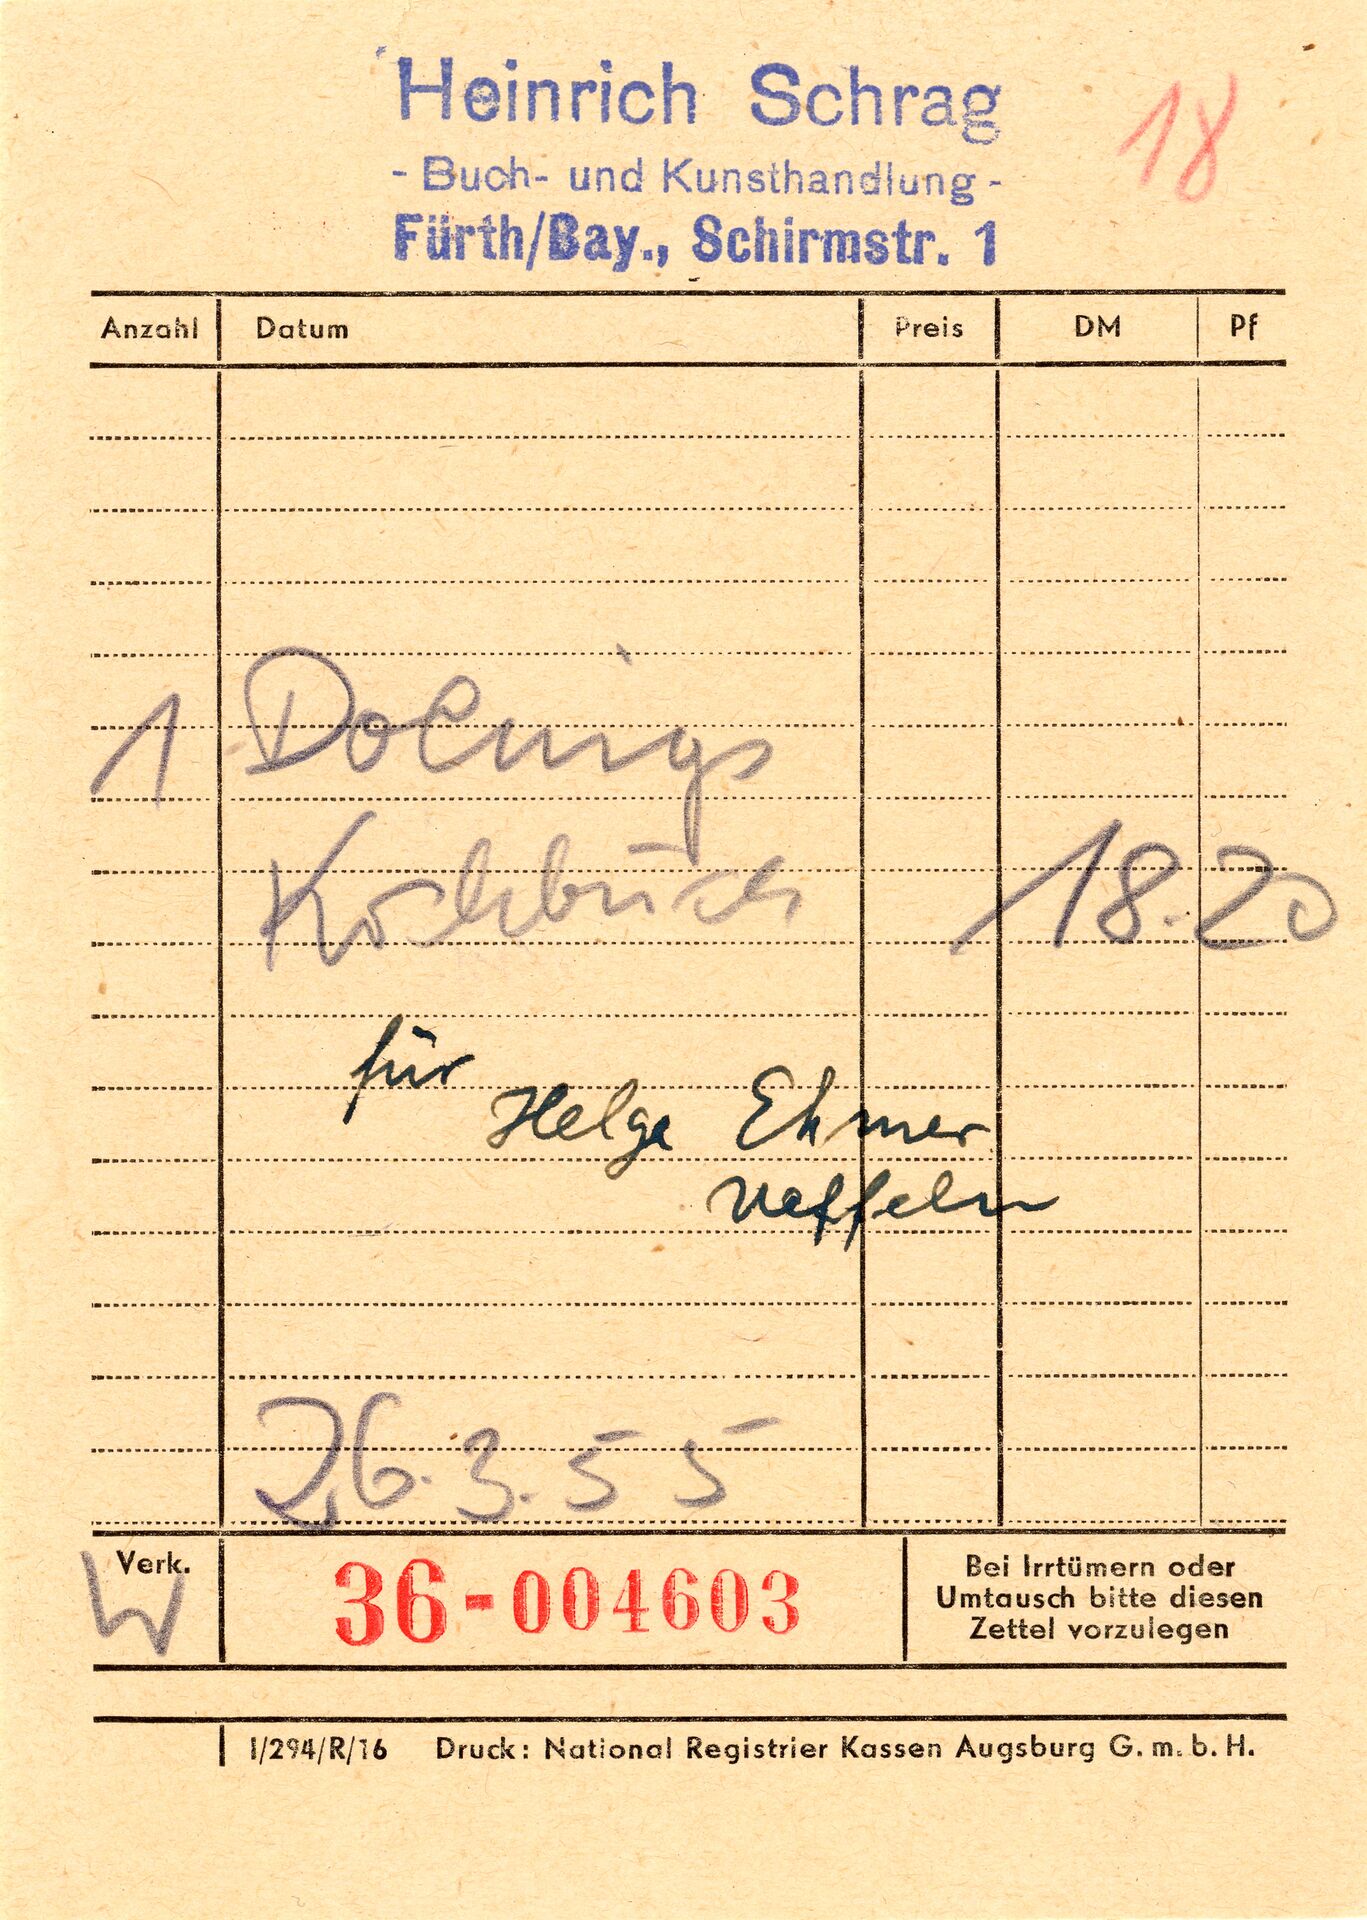 Heinrich Schrag
18
- Buch- und Kunsthandlung -
Fürth/Bay., Schirmstr. 1
Anzahl Datum Preis DM Pf
1
Kochbuch 18.20
für
Helge Ehmer
26.3.55
Verk. 36-004603 Bei Irrtümern oder
Umtausch bitte diesen
Zettel vorzulegen
W
I/294/R/16 Druck: National Registrier Kassen Augsburg G.m.b.H.